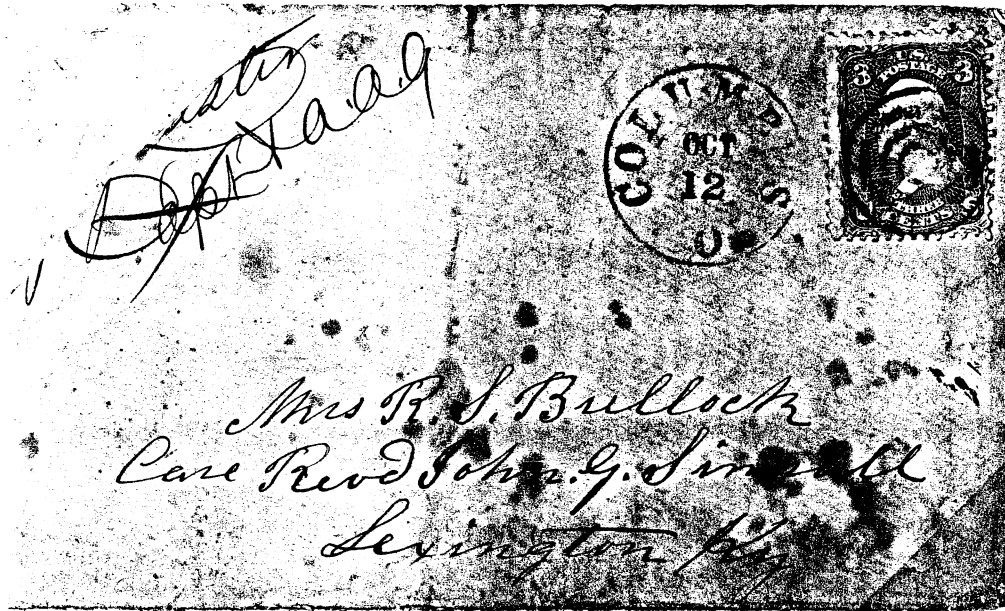 Capt & A.A.G
COLUMBUS
OCT
12
O
3 U.S. POSTAGE 3
CENTS
Mrs R. S. Bullock
Care Revd John. G. Simrall
Lexington Ky